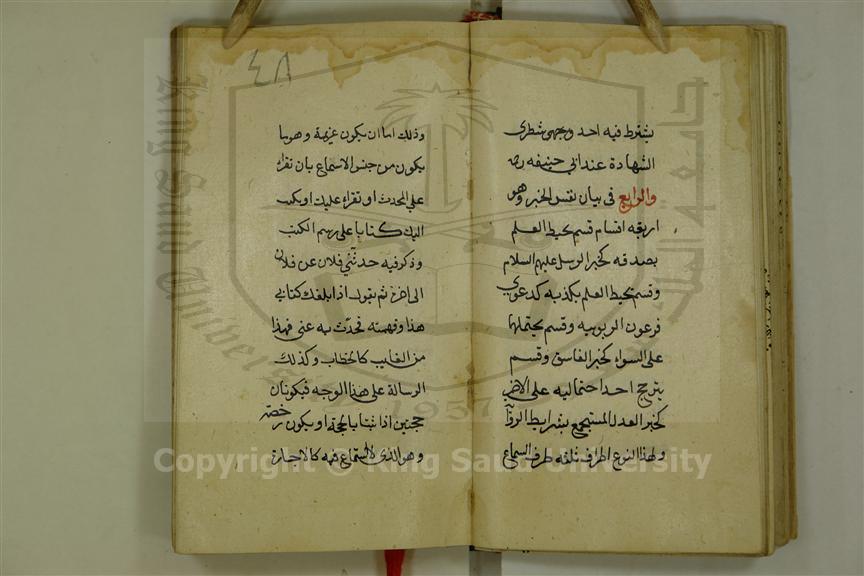 يشترط فيه احد وجهي شطري
الشهادة عند ابي حنيفه رحه
والرابع في بيان نفس الخبر وهو
اربعه اقسام قسم يحيط العلم
بصدقه كخبر الرسل عليهم السلام
وقسم يحيط العلم بكذبه كدعوي
فرعون الربوبيه وقسم يحتملهما
على السواء كخبر الفاسق وقسم
يترجح احد احتماليه على الاخر
كخبر العدل المستجمع بشرايط الرواية
ولهذا النوع اطراف ثلثه طرف السماع
٤٨
وذلك اما ان يكون عزيمة وهو ما
يكون من جنس الاسماع بان تقراء
على المحدث او تقراء عليك او يكتب
اليك كتابا على رسم الكتب
وذكر فيه حدثني فلان عن فلان
الى اخره ثم يقول اذا بلغك كتابي
هذا وفهمته فحدث به عني فهذا
من الغايب كالخطاب وكذلك
الرسالة على هذا الوجه فيكونان
حجتين اذا ثبتا بالحجة او يكون رخصة
وهو الذي لا استماع فيه كالاجازة
جامعة الملك سعود
King Saud University
1957
Copyright © King Saud University